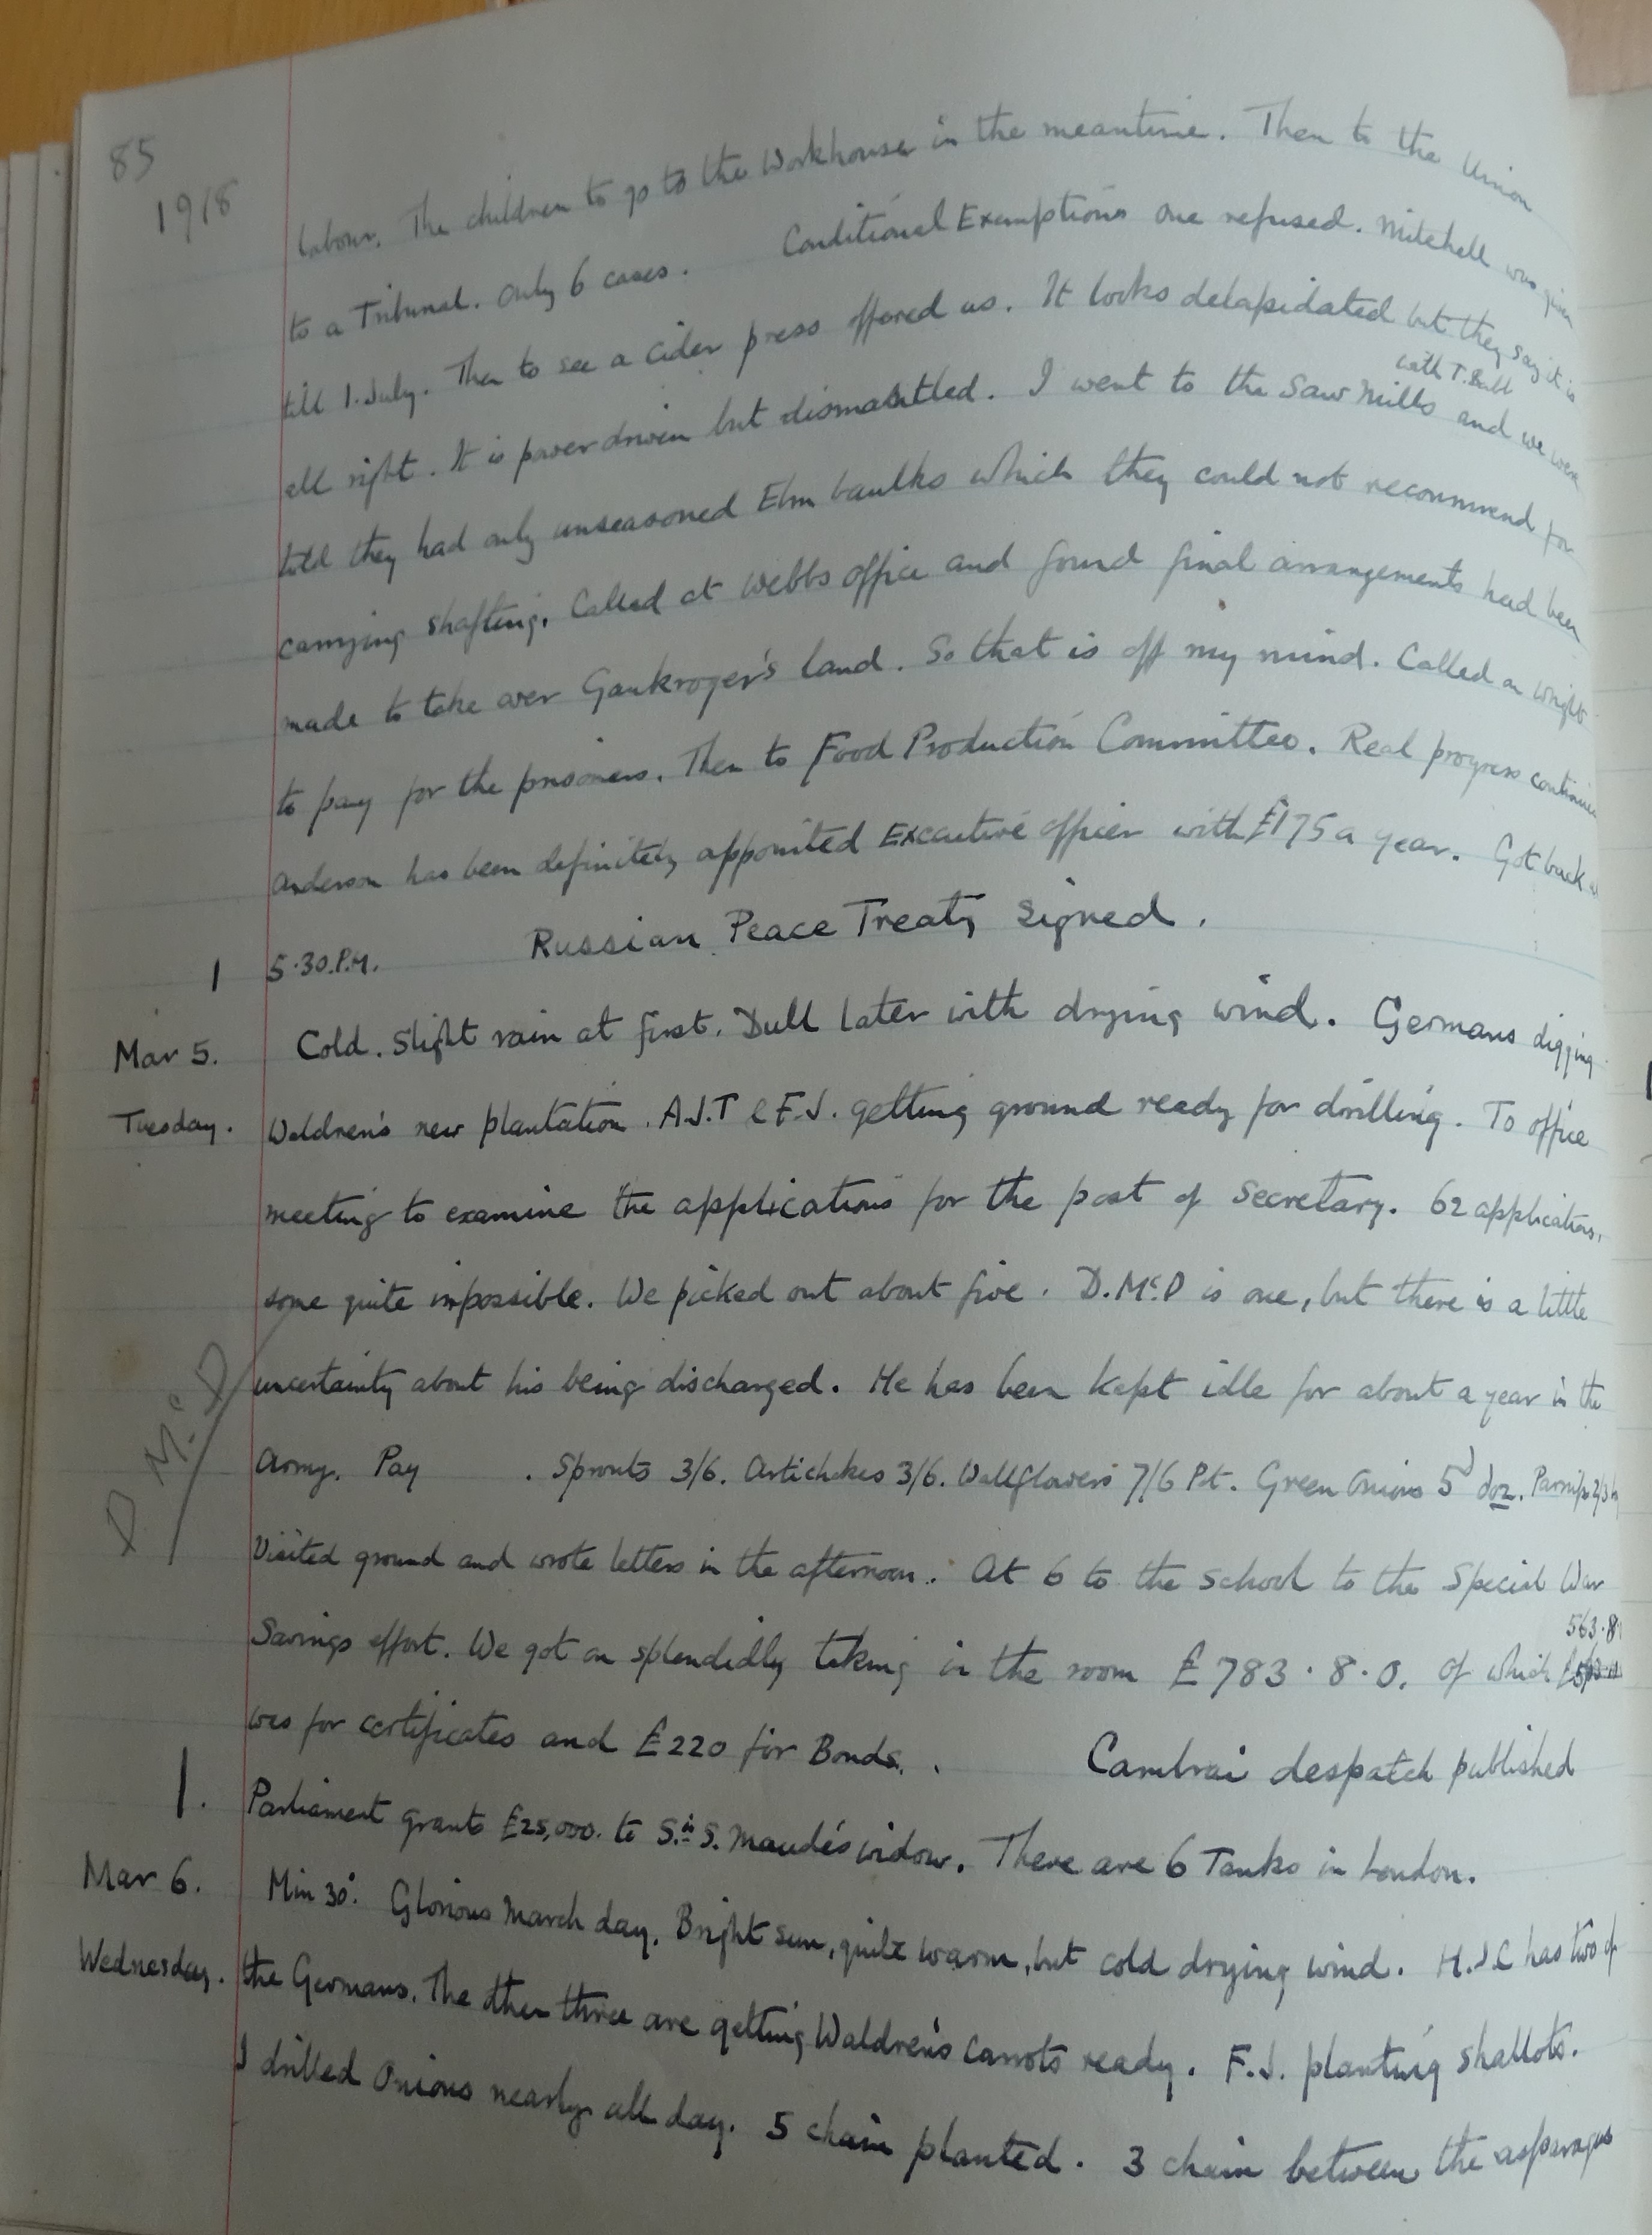 85
1918
labour. The children to go to the Workhouse in the meantime. Then to the Union
to a Tribunal. Only 6 cases. Conditional Exemptions one refused. Mitchell was given
till 1. July. Then to see a Cider press offered us. It looks delapidated but they say it is
with T. Ball
all right. It is power driven but dismantled. I went to the Saw Mills and we were
told they had only unseasoned Elm baulks which they could not recommend for
carrying shafting. Called at Webbs office and found final arrangements had been
made to take over Gaukroger's land. So that is off my mind. Called on Wright
to pay for the prisoners. Then to Food Production Committee. Real progress continues
Anderson has been definitely appointed Executive officer with £175 a year. Got back at
1 5.30.P.M. Russian Peace Treaty signed.
Mar 5. Cold. Slight rain at first. Dull later with drying wind. Germans digging
Tuesday. Waldren's new plantation. A.J.T & F.J. getting ground ready for drilling. To office
meeting to examine the applications for the post of Secretary. 62 applications,
some quite impossible. We picked out about five. D. McD is one, but there is a little
uncertainty about his being discharged. He has been kept idle for about a year in the
D McD
Army. Pay . Sprouts 3/6. Artichokes 3/6. Wallflowers 7/6 Pot. Green Onions 5d doz. Parsnips 2/3
Visited ground and wrote letters in the afternoon. At 6 to the school to the Special War
563.8
Savings effort. We got on splendidly taking in the room £783.8.0. of which
was for certificates and £220 for Bonds. Cambrai despatch published
1. Parliament grants £25,000. to Sir S. Maude's widow. There are 6 Tanks in London.
Mar 6. Min 30°. Glorious March day. Bright sun, quite warm, but cold drying wind. H.J.C has two of
Wednesday. the Germans. The other three are getting Waldren's Carrots ready. F.J. planting shallots.
I drilled Onions nearly all day. 5 chain planted. 3 chain between the asparagus